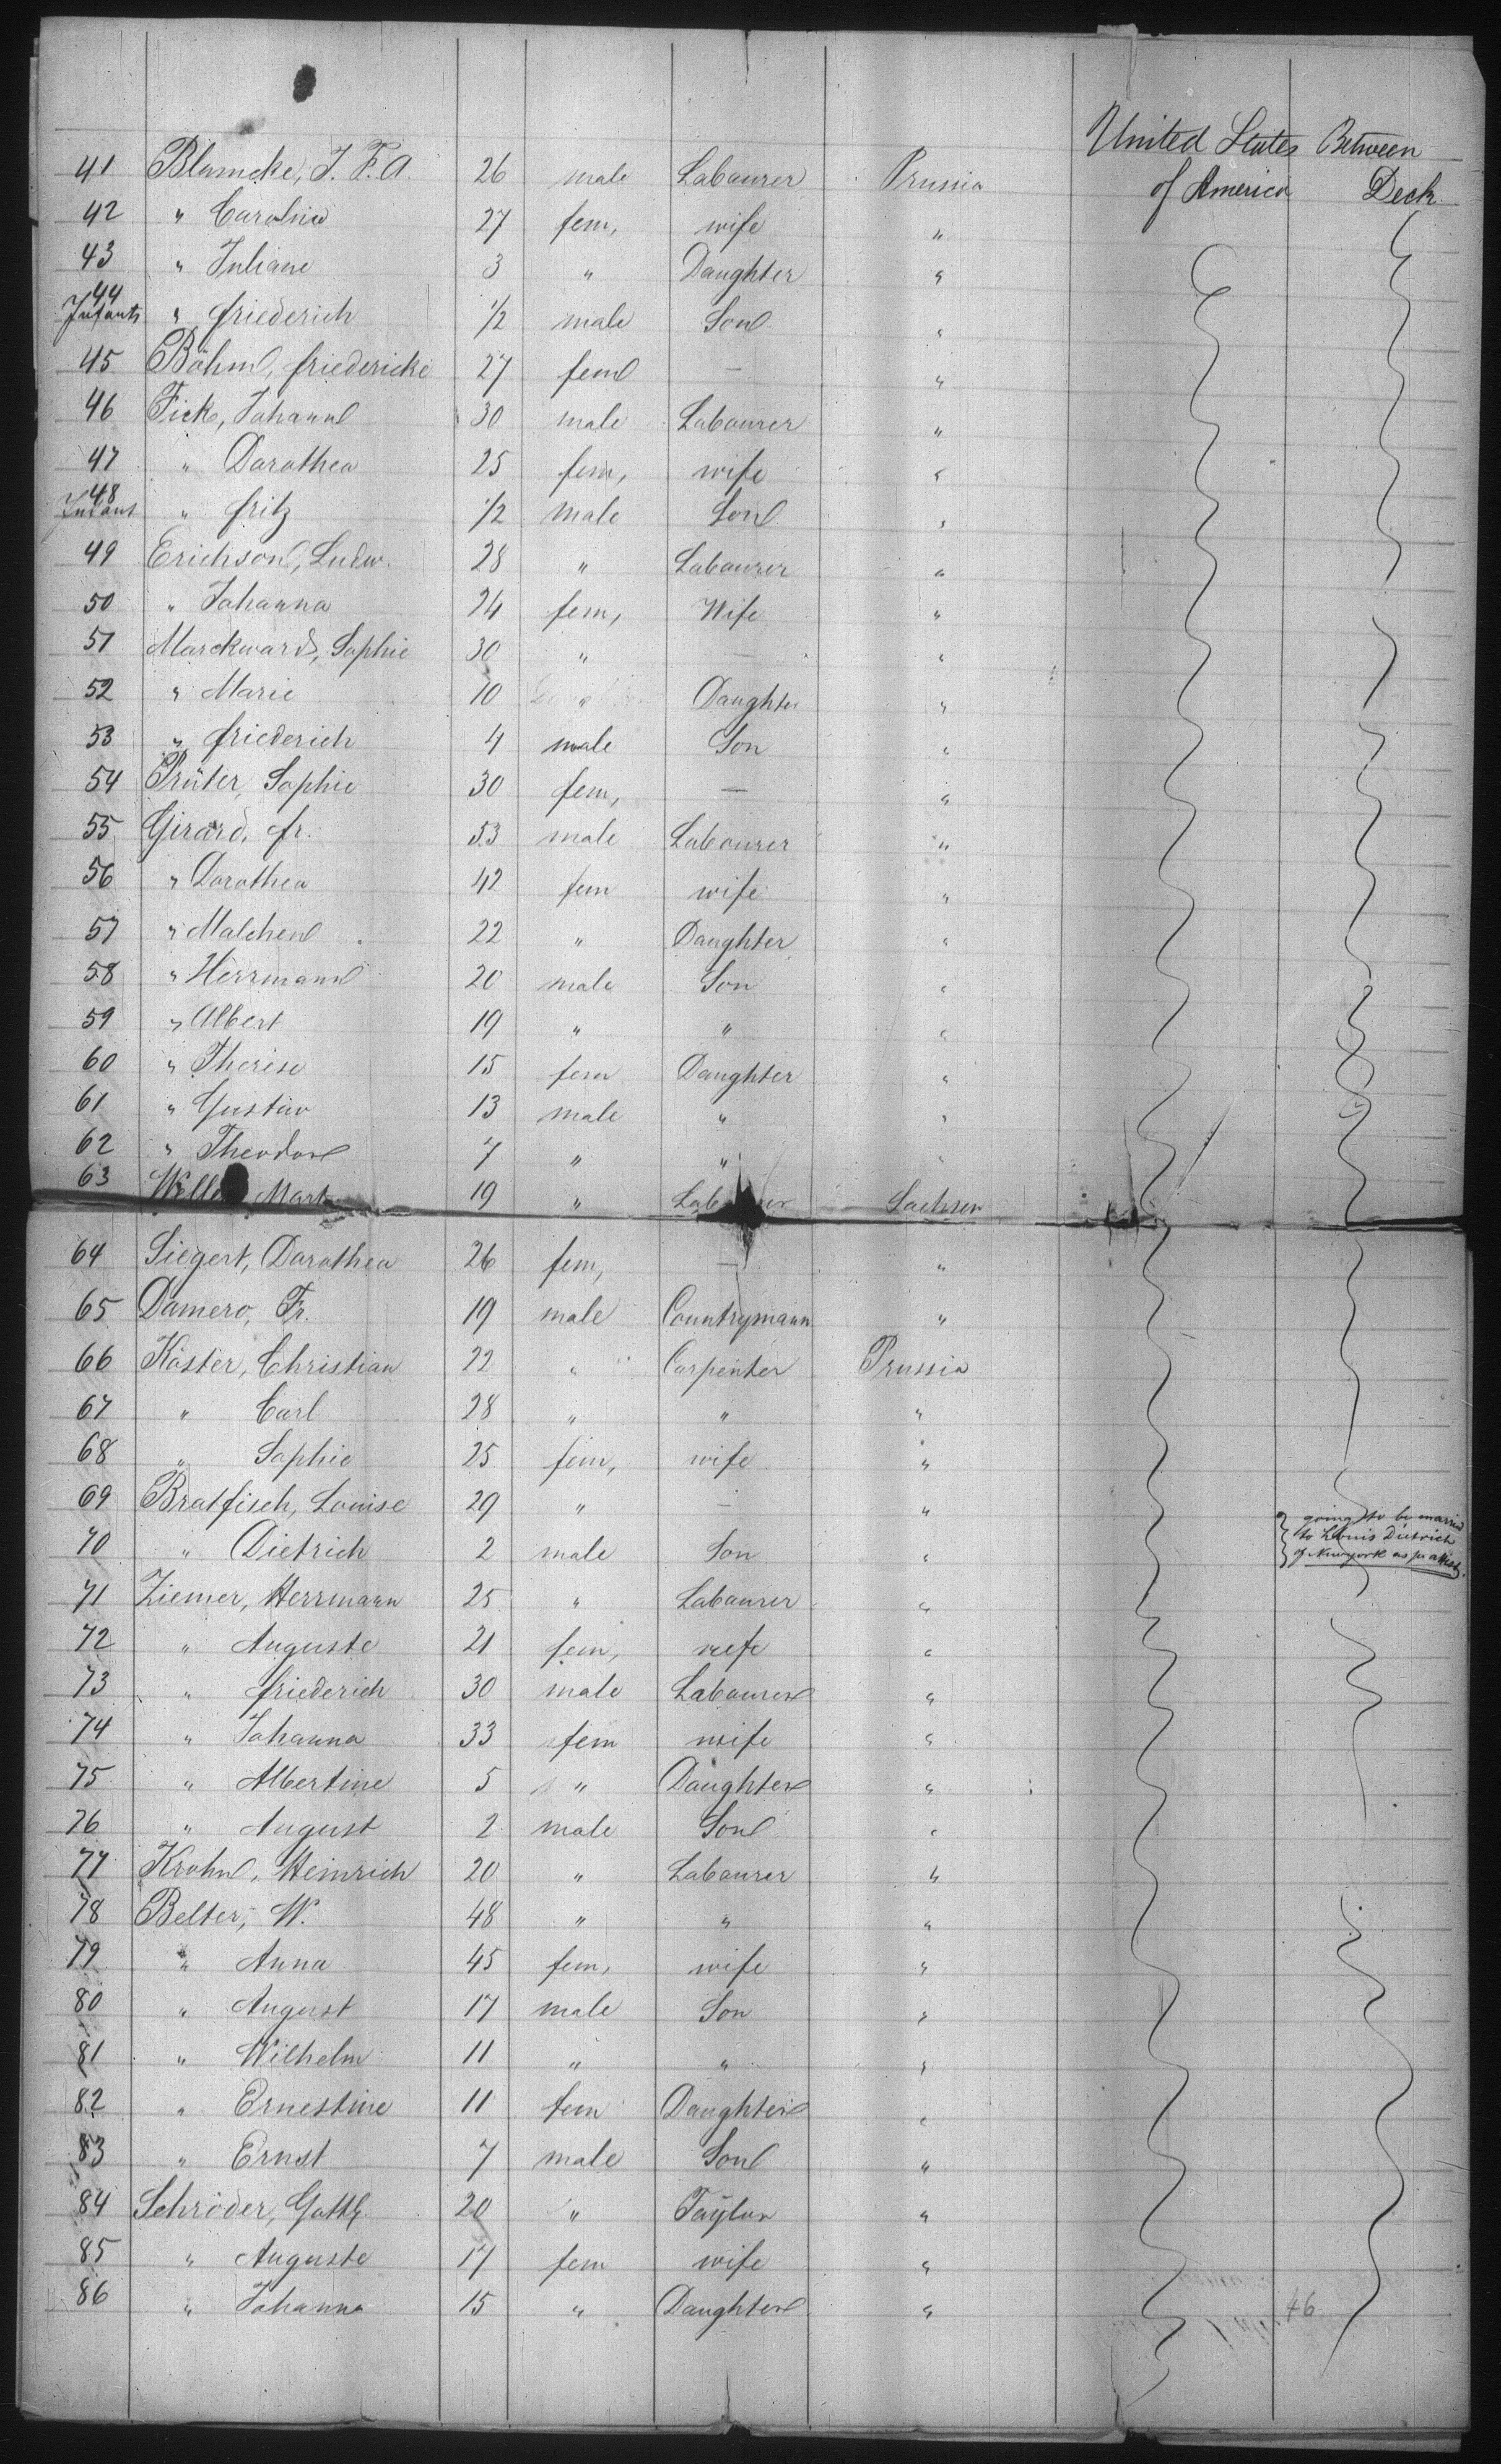 United States Between
41 Blamcke, J. F. A. 26 male Labaurer Prussia of America Deck
42 " Caroline 27 fem, wife "
43 " Juliane 3 " Daughter "
44 Infants " friederich 1/2 male Son "
45 Böhm, friedericke 27 fem — "
46 Fick, Johann 30 male Labaurer "
47 " Dorothea 25 fem, wife "
48 Infant " fritz 1/2 male Son "
49 Erichson, Ludw. 28 " Labaurer "
50 " Johanna 24 fem, Wife "
51 Marckward, Sophie 30 " — "
52 " Marie 10 " Daughter "
53 " friederich 4 male Son "
54 Prüter, Sophie 30 fem, — "
55 Girard, fr. 53 male Labourer "
56 " Dorothea 42 fem wife "
57 " Malchen 22 " Daughter "
58 " Herrmann 20 male Son "
59 " Albert 19 " " "
60 " Therese 15 fem Daughter "
61 " Gustav 13 male " "
62 " Theodor 7 " " "
63 19 " Sachsen
64 Siegert, Dorothea 26 fem, — "
65 Damero, Fr. 19 male Countrymann "
66 Köster, Christian 22 " Carpenter Prussia
67 " Carl 28 " " "
68 " Sophie 25 fem, wife "
69 Bratfisch, Louise 29 " — " going to be married
70 " Dietrich 2 male Son " to Louis Dietrich
of Newyork as pr attest.
71 Ziemer, Herrmann 25 " Labaurer "
72 " Auguste 21 fem, wife "
73 " friederich 30 male Labaurer "
74 " Johanna 33 fem wife "
75 " Albertine 5 " Daughter "
76 " August 2 male Son "
77 Krohn, Heinrich 20 " Labaurer "
78 Belter, W. 48 " " "
79 " Anna 45 fem, wife "
80 " August 17 male Son "
81 " Wilhelm 11 " " "
82 " Ernestine 11 fem Daughter "
83 " Ernst 7 male Son "
84 Schröder, Gottl. 20 " Taylor "
85 " Auguste 17 fem wife "
86 " Johanna 15 " Daughter "
46